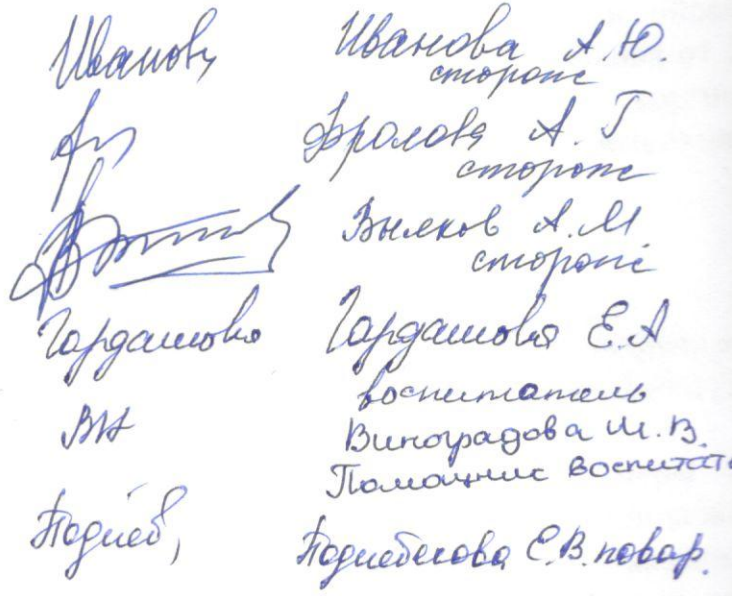 Иванова Иванова А.Ю.
сторож
Фролова А. Г
сторож
Вылков А.М.
сторож
Гардашова Гардашова Е.А
воспитатель
Виноградова М.В.
Помощник воспитате
Е.В. повар.